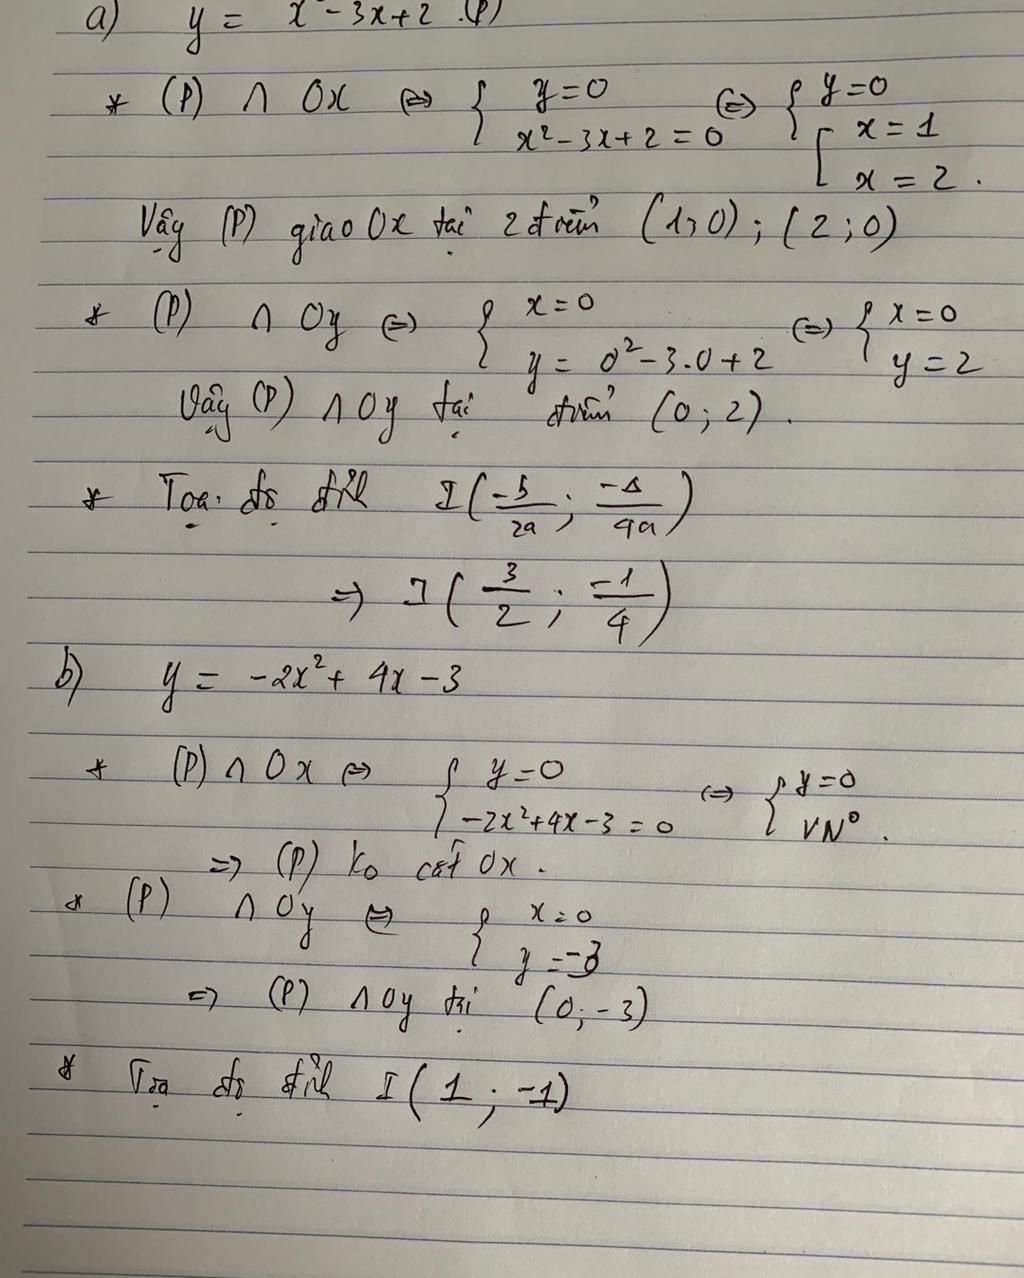 a) y = x² - 3x + 2 (P)
* (P) ∩ Ox ⇔ { y = 0 ; x² - 3x + 2 = 0 ⇔ { y = 0 ; [ x = 1 ; x = 2.
Vậy (P) giao Ox tại 2 điểm (1; 0) ; (2 ; 0)
* (P) ∩ Oy ⇔ { x = 0 ; y = 0² - 3.0 + 2 ⇔ { x = 0 ; y = 2
Vậy (P) ∩ Oy tại điểm (0 ; 2).
* Tọa độ đỉnh I ( -b/2a ; -Δ/4a )
⇒ I ( 3/2 ; -1/4 )
b) y = -2x² + 4x - 3
* (P) ∩ Ox ⇔ { y = 0 ; -2x² + 4x - 3 = 0 ⇔ { y = 0 ; VN⁰.
⇒ (P) ko cắt Ox.
* (P) ∩ Oy ⇔ { x = 0 ; y = -3
⇒ (P) ∩ Oy tại (0; -3)
* Tọa độ đỉnh I ( 1 ; -1)